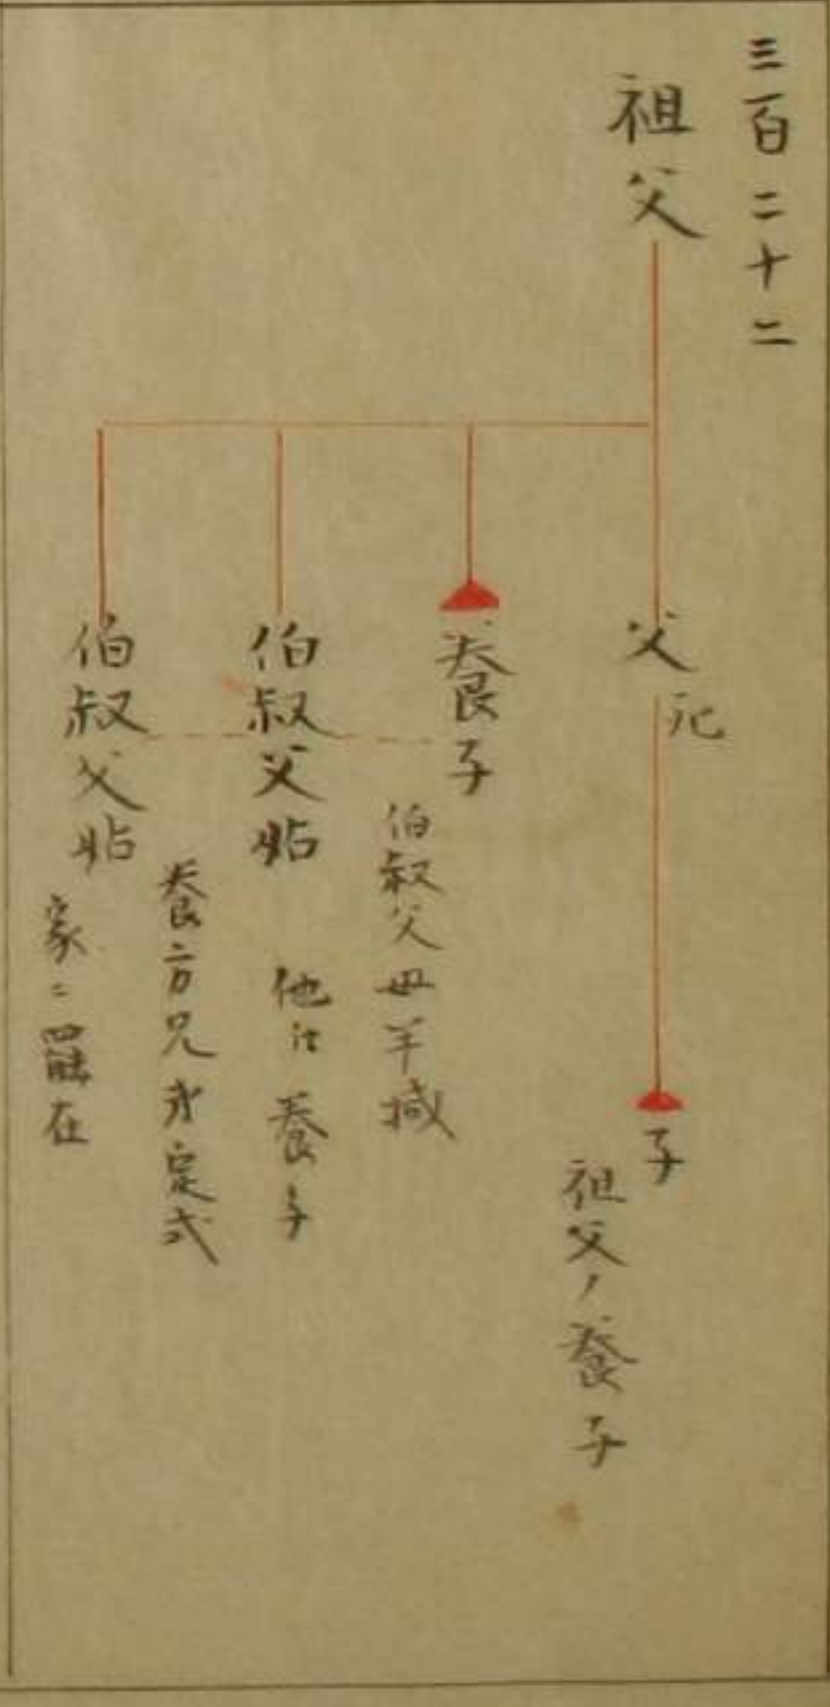 三百二十二
祖父
父
死
子
祖父ノ養子
養子
伯叔父母半減
伯叔父姑
他江養子
養方兄弟定式
伯叔父姑
家ニ罷在